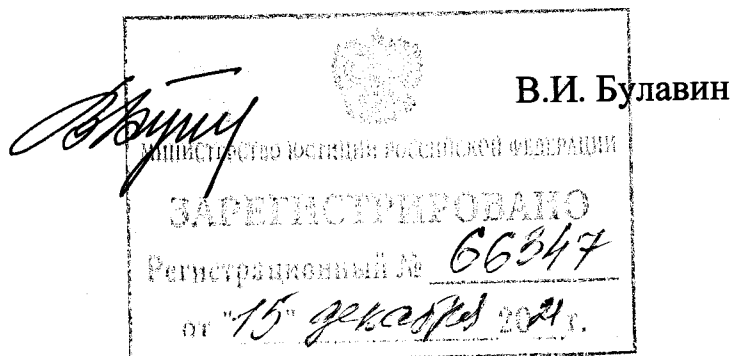 В.И. Булавин
МИНИСТЕРСТВО ЮСТИЦИИ РОССИЙСКОЙ ФЕДЕРАЦИИ
ЗАРЕГИСТРИРОВАНО
Регистрационный № 66347
от "15" декабря 2021 г.